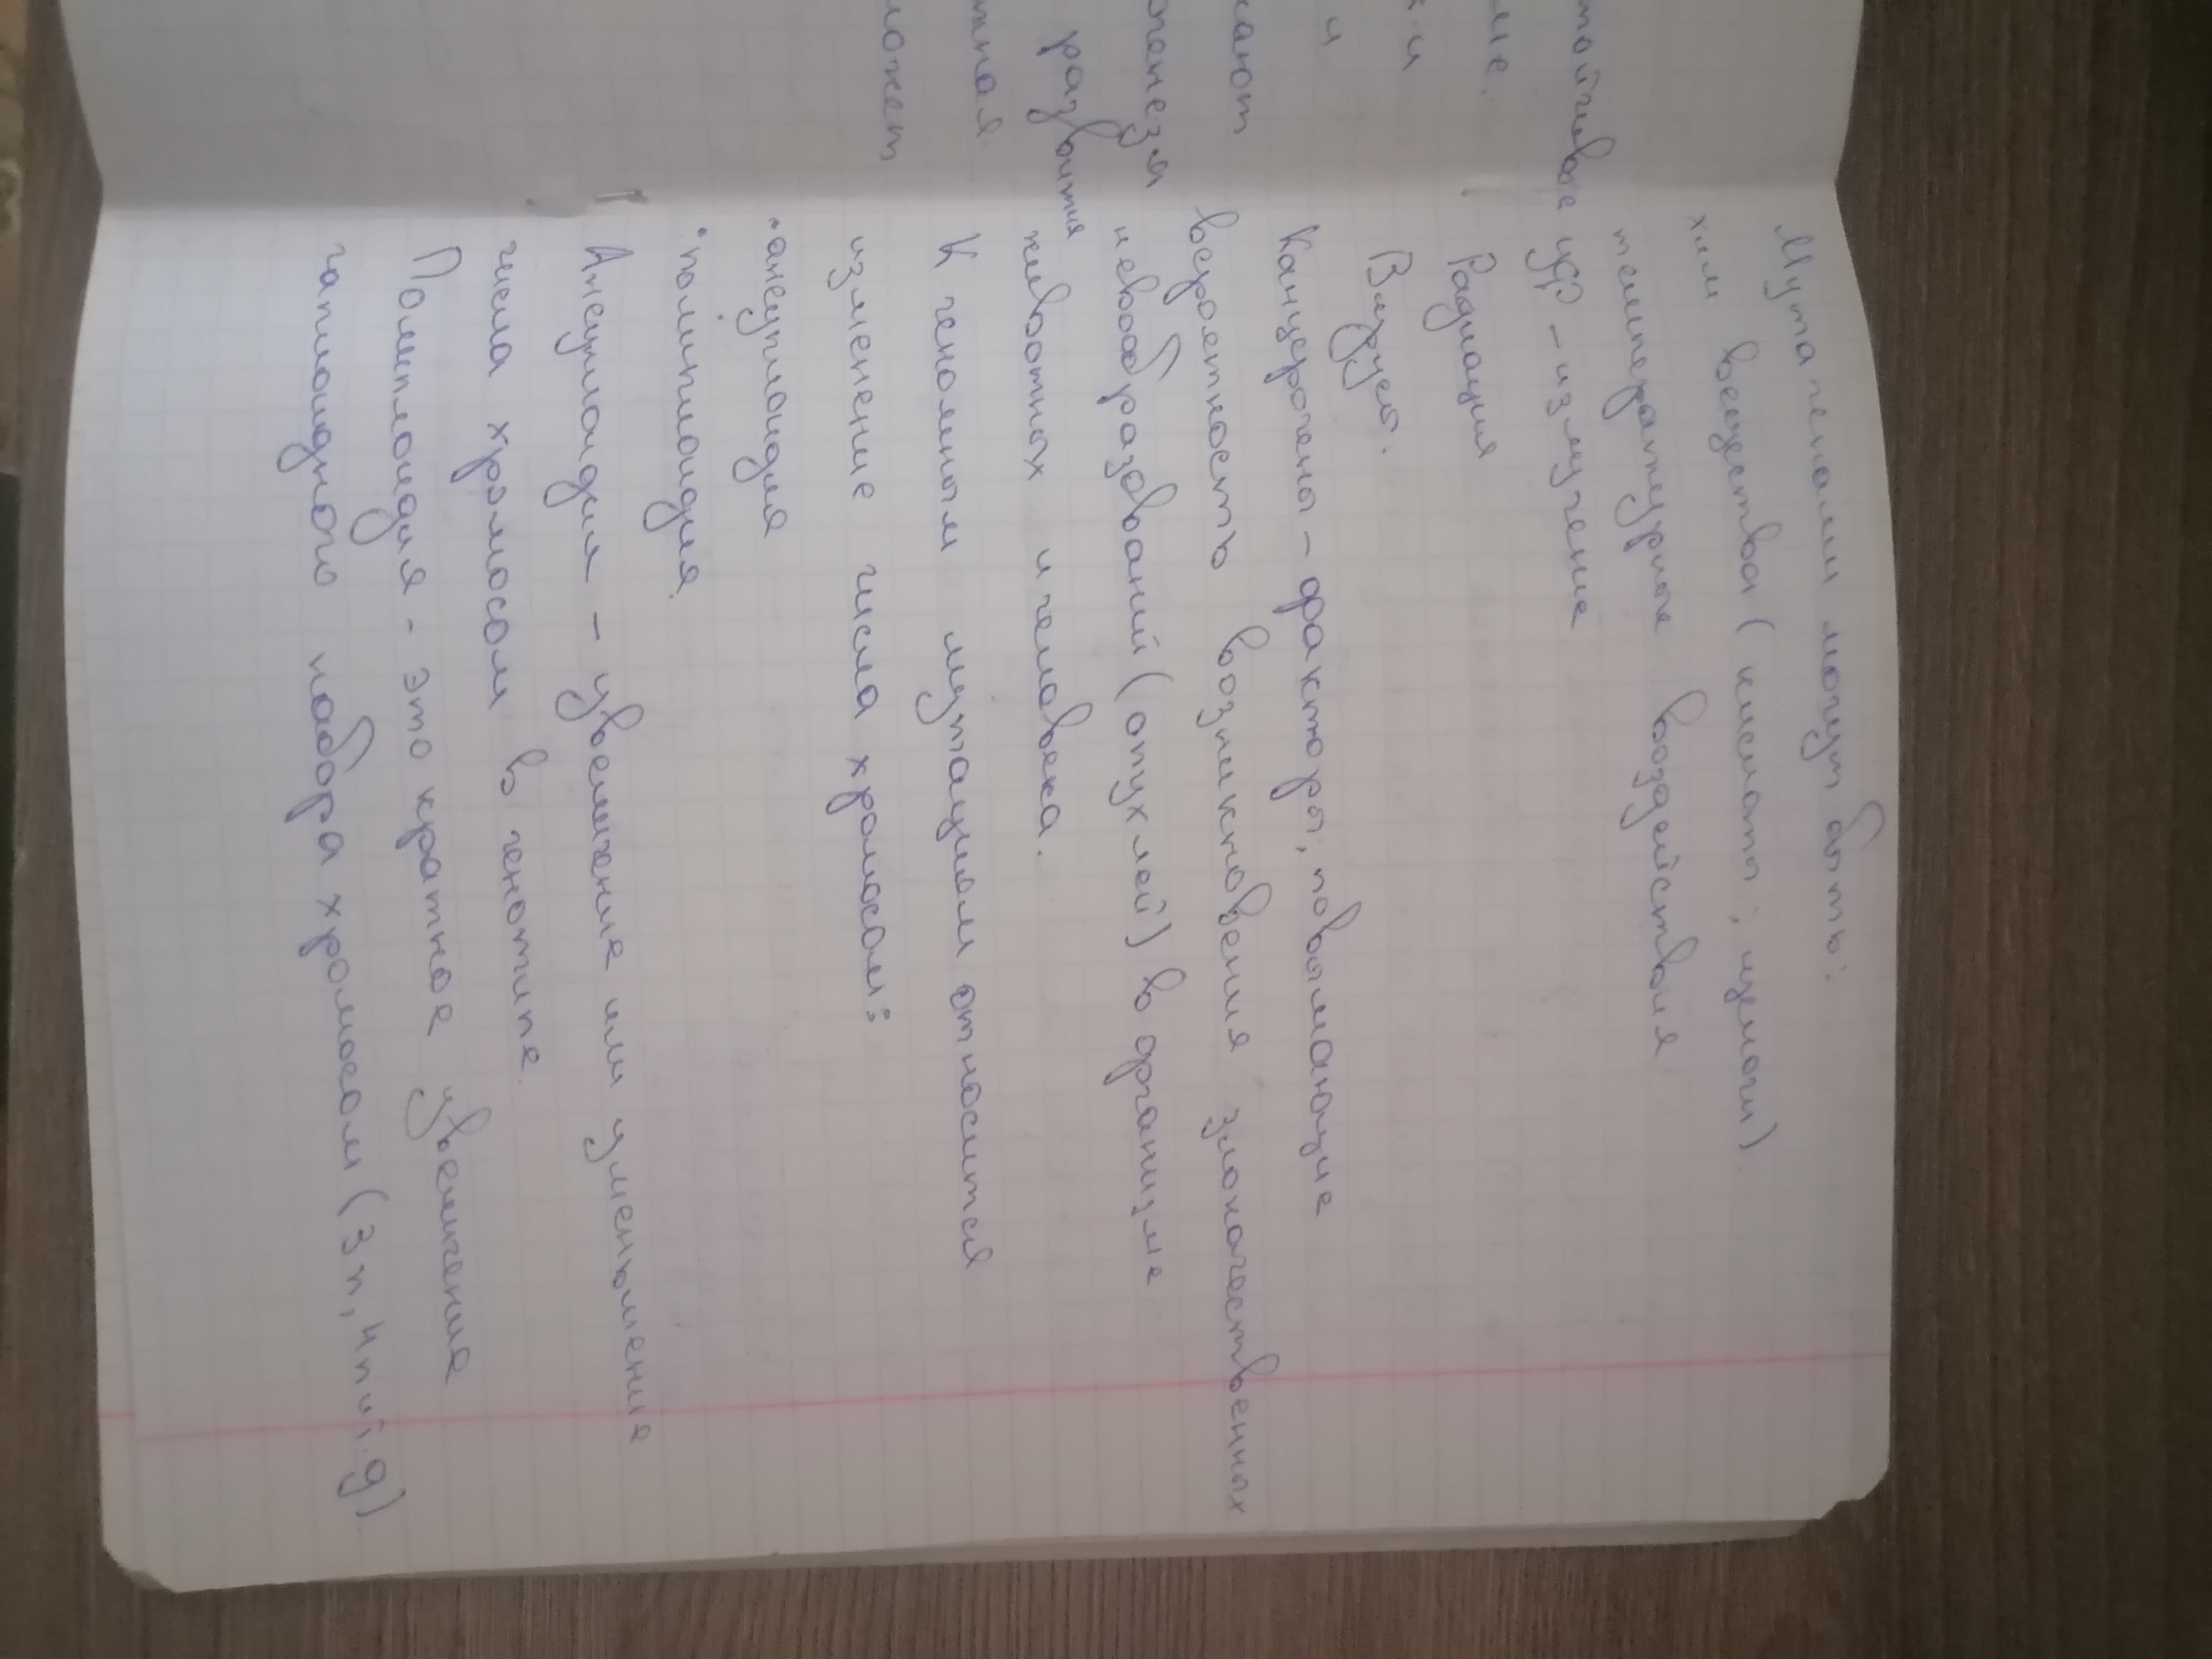 тойчивые
ме.
х.и
и
чают
отенезя
развития
тная
может
Мутагенами могут быть:
хим вещества (кислоты, щелочи)
температурные воздействия
УФ - излучение
Радиация
Вирусы.
Канцерогены - факторы, повышающие
вероятность возникновения злокачественных
невообразований (опухлей) в организме
животных и человека.
К геномным мутациям относится
изменение числа хромосом:
•анеуплоидия
•полиплоидия.
Анеуплоидия - увеличение или уменьшение
числа хромосом в генотипе.
Полиплоидия - это кратное увеличение
гаплоидного набора хромосом (3n, 4n и т.д).